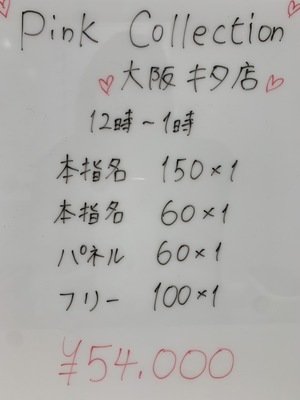 Pink Collection
大阪キタ店
12時~1時
本指名 150×1
本指名 60×1
パネル 60×1
フリー 100×1
¥54.000